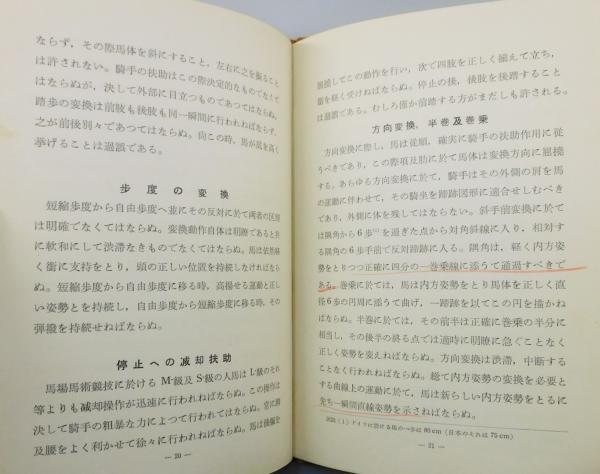 ならず，その際馬体を斜にすること，左右に之を振ること
は許されない。騎手の扶助はこの際決定的なものでなくて
はならぬが，決して外部に目立つものであつてはならぬ。
踏歩の変換は前肢も後肢も同一瞬間に行われねばならず，
之が前後別々であつてはならぬ。尙この時，馬が尻を高く
挙げることは過誤である。
歩度の変換
短縮歩度から自由歩度へ並にその反対に於て両者の区別
は明確でなくてはならぬ。変換動作自体は明瞭であると共
に軟和にして渋滞なきものでなくてはならぬ。馬は依然軽
く銜に支持をとり，頭の正しい位置を持続しなければなら
ぬ。短縮歩度から自由歩度に移る時，高揚せる運動と正し
い姿勢とを持続し，自由歩度から短縮歩度に移る時，その
弾撥を持続せねばならぬ。
停止への減却扶助
馬場馬術競技に於ける M級及 S級の人馬は L級のそれ
等よりも減却操作が迅速に行われねばならぬ。この操作は
決して騎手の粗暴な力によつて行われてはならぬ。常に腰
及腰をよく利かせて徐々に行われねばならぬ。馬は後軀を
— 20 —
屈撓してこの動作を行い，次で四肢を正しく揃えて立ち，
銜を軽く受けねばならぬ。停止の後，後肢を後踏すること
は過誤である。むしろ僅か前踏する方がまだしも許される。
方向変換，半巻及巻乗
方向変換に際し，馬は従順，確実に騎手の扶助作用に従
うべきであり，この際項及肋に於て馬体は変換方向に屈撓
する。あらゆる方向変換に於て，騎手はその外側の肩を馬
の運動に伴わせて，その騎坐を蹄跡図形に適合せしむべき
であり，外側に体を残してはならない。斜手前変換に於て
は隅角から6歩⁽¹⁾を過ぎた点から対角斜線に入り，相対す
る隅角の6歩手前で反対蹄跡に入る。隅角は，軽く内方姿
勢をとりつつ正確に四分の一巻乗線に添うて通過すべきで
ある。巻乗に於ては，馬は内方姿勢をとり馬体を正しく直
径6歩の円周に添うて曲げ，一蹄跡を以てこの円を描かね
ばならぬ。半巻に於ては，その前半は正確に巻乗の半分に
相当し，その後手の終る点では適時に明瞭に急ぐことなく
正しく姿勢を変えねばならぬ。方向変換は渋滞，中断する
ことなく行われねばならぬ。総て内方姿勢の変換を必要と
する曲線上の運動に於て，馬は新らしい内方姿勢をとるに
先ち一瞬間直線姿勢を示さねばならぬ。
訳註(1) ドイツに於ける馬の一歩は80cm(日本のそれは75cm)
— 21 —